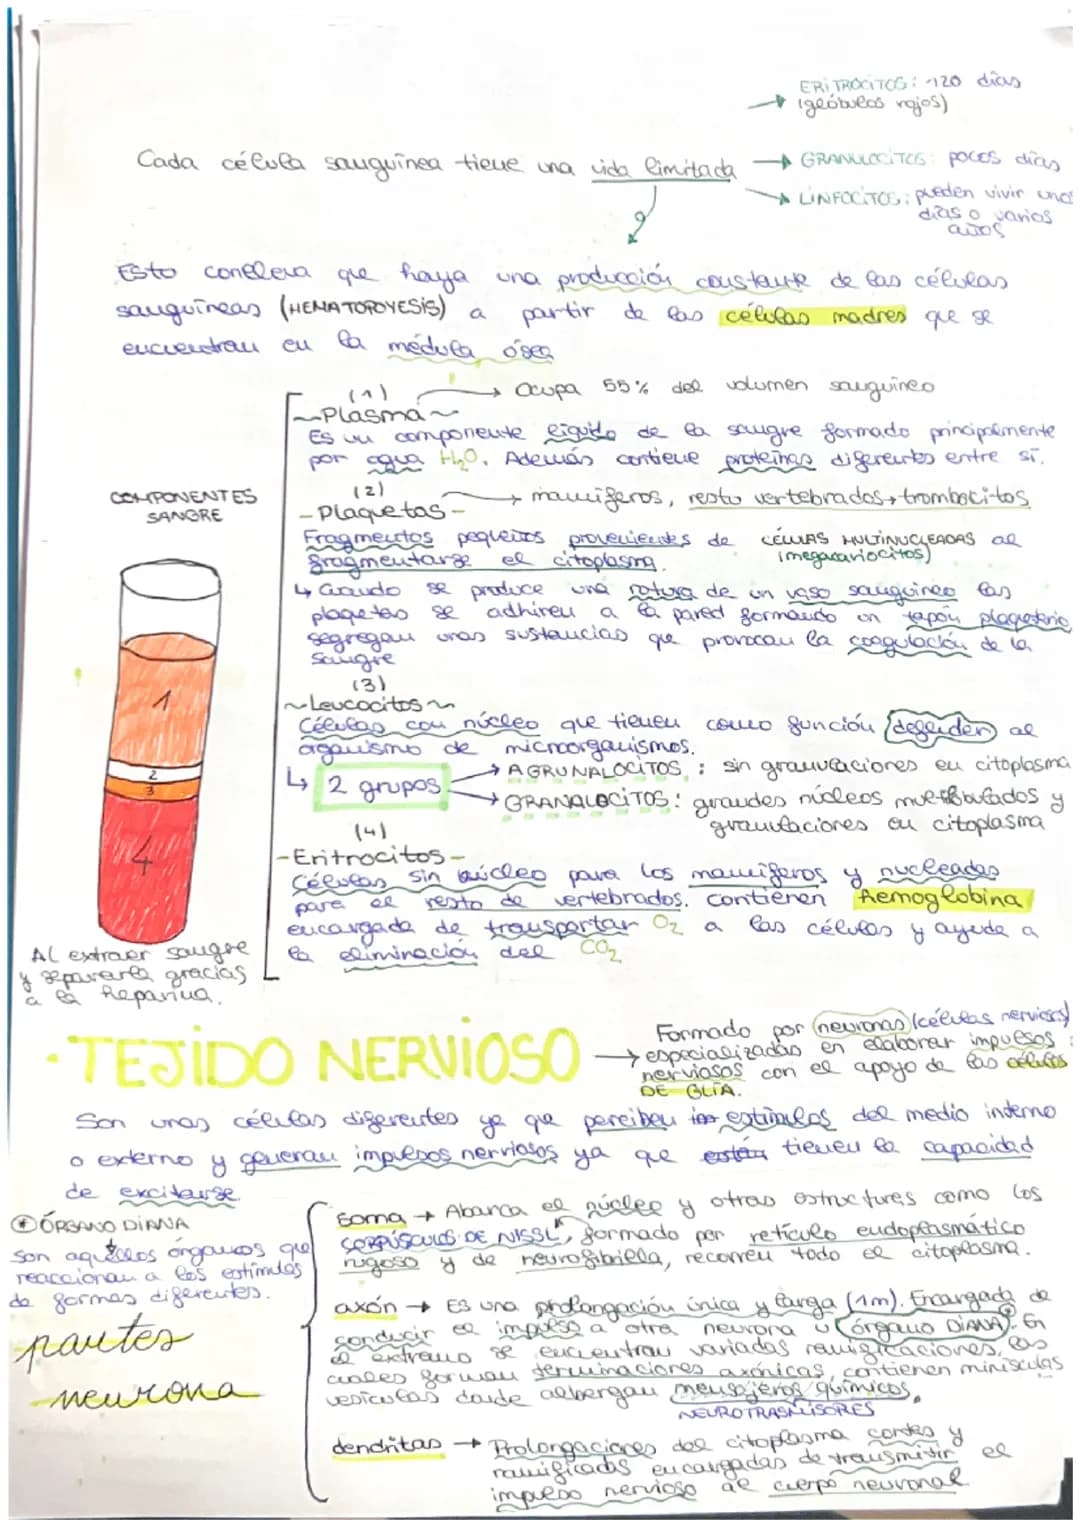 ERITROCITOS: ~120 días
(glóbulos rojos)
Cada célula sanguínea tiene una vida limitada
GRANULOCITOS: pocos días
LINFOCITOS: pueden vivir unos
días o varios
años
Esto conlleva que haya una producción constante de las células
sanguíneas (HEMATOPOYESIS) a partir de las células madres que se
encuentran en la médula ósea
(1)
Ocupa 55% del volumen sanguíneo
~Plasma~
Es un componente líquido de la sangre formado principalmente
por agua H₂O. Además contiene proteínas diferentes entre sí.
COMPONENTES
SANGRE
(2)
-Plaquetas-
mamíferos, resto vertebrados → trombocitos
Fragmentos pequeños provenientes de CÉLULAS MULTINUCLEADAS al
(megacariocitos)
fragmentarse el citoplasma.
↳ Cuando se produce una rotura de un vaso sanguíneo las
plaquetas se adhiren a la pared formando un tapón plaquetario
segregan unas sustancias que provocan la coagulación de la
sangre
(3)
~Leucocitos~
Células con núcleo que tienen como función defender al
organismo de microorganismos.
↳ 2 grupos
AGRUNALOCITOS: sin granulaciones en citoplasma
GRANALOCITOS: grandes núcleos multilobulados y
granulaciones en citoplasma
(4)
-Eritrocitos-
Células sin núcleo para los mamíferos y nucleadas
para el resto de vertebrados. Contienen Hemoglobina
encargada de transportar O₂ a las células y ayuda a
la eliminación del CO₂
1
2
3
4
Al extraer sangre
y separarla gracias
a la heparina.
·TEJIDO NERVIOSO
Formado por neuronas (células nerviosas)
especializadas en elaborar impulsos
nerviosos con el apoyo de las células
DE GLÍA.
Son unas células diferentes ya que perciben estímulos del medio interno
o externo y generan impulsos nerviosos ya que tienen la capacidad
de excitarse
* ÓRGANO DIANA
Son aquellos órganos que
reaccionan a los estímulos
de formas diferentes.
partes
neurona
Soma → Abarca el núcleo y otras estructuras como los
CORPÚSCULOS DE NISSL, formado por retículo endoplasmático
rugoso y de neurofibrilla, recorren todo el citoplasma.
axón → Es una prolongación única y larga (1m). Encargada de
conducir el impulso a otra neurona u órgano DIANA*. En
el extremo se encuentran variadas ramificaciones, las
cuales forman terminaciones axónicas, contienen minúsculas
vesículas donde albergan mensajeros químicos.
NEUROTRASMISORES
dendritas → Prolongaciones del citoplasma cortas y
ramificadas encargadas de transmitir el
impulso nervioso al cuerpo neuronal.